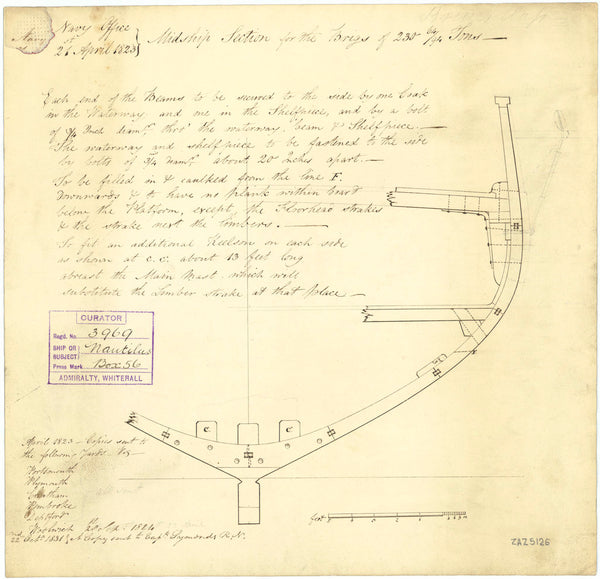 Navy Office
21st April 1823
Midship Section for the Brigs of 230 64/94 Tons
Each end of the Beams to be secured to the side by one Coak
in the Waterway and one in the Shelfpiece, and by a bolt
of 3/4 Inch diamr. thro' the waterway, beam & Shelfpiece.—
The waterway and shelfpiece to be fastened to the side
by bolts of 3/4 diamr. about 20 inches apart.—
To be filled in & caulked from the line F.
downwards & to have no plank within board
below the Platform, except, the Floorhead strakes
& the strake next the limbers.—
To fit an additional Keelson on each side
as shewn at c.c. about 13 feet long
abreast the Main Mast which will
substitute the Limber strake at that place—
CURATOR
Regd. No. 3969
SHIP OR SUBJECT Nautilus
Press Mark Box 56
ADMIRALTY, WHITEHALL
c
c
April 1823—Copies sent to
the following Yards. Viz
Portsmouth
Plymouth
Chatham
Pembroke
Deptford
Woolwich 1824
22nd Octr. 1831 A Copy sent to Captn. Symonds R.N.
feet
ZAZ5126